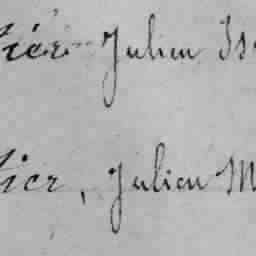 ier Julien Is
ier, Julien M